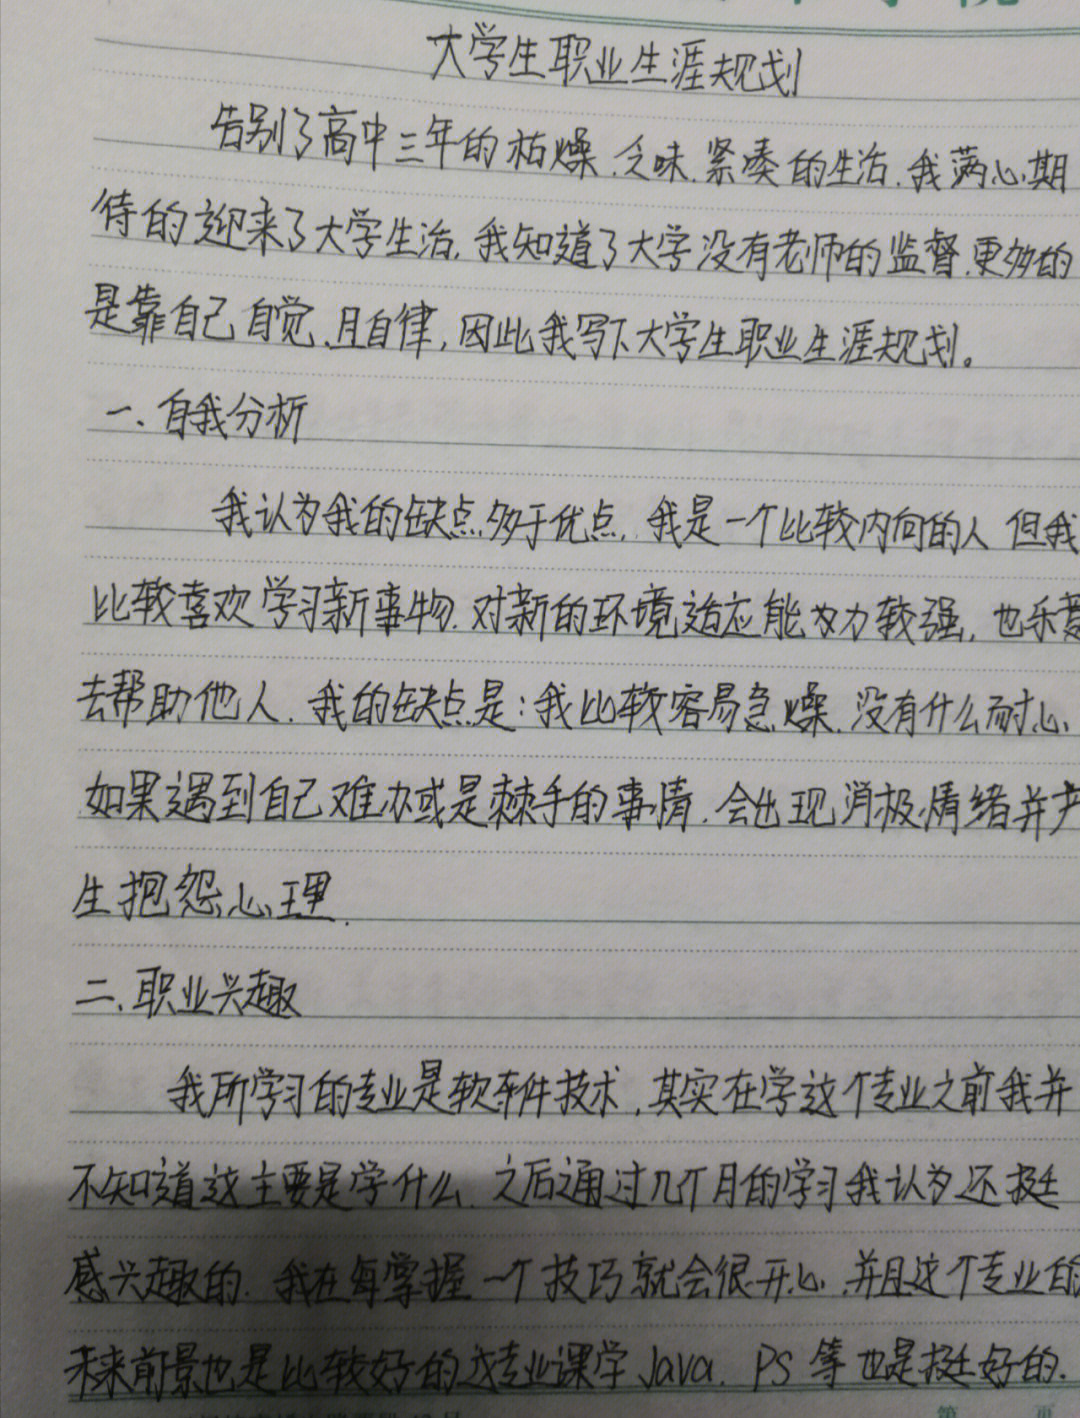 大学生职业生涯规划
告别了高中三年的枯燥.乏味.紧凑的生活.我满心期
待的迎来了大学生活.我知道了大学没有老师的监督.更多的
是靠自己自觉、且自律,因此我写下大学生职业生涯规划。
一、自我分析
我认为我的缺点多于优点.我是一个比较内向的人 但我
比较喜欢学习新事物.对新的环境适应能力较强,也乐意
去帮助他人.我的缺点是:我比较容易急燥.没有什么耐心、
如果遇到自己难办或是棘手的事情.会出现消极情绪并产
生抱怨心理.
二、职业兴趣
我所学习的专业是软件技术,其实在学这个专业之前我并
不知道这主要是学什么.之后通过几个月的学习我认为还挺
感兴趣的.我在每掌握一个技巧就会很开心.并且这个专业的
未来前景也是比较好的这专业课学Java.PS等也是挺好的.
第 页